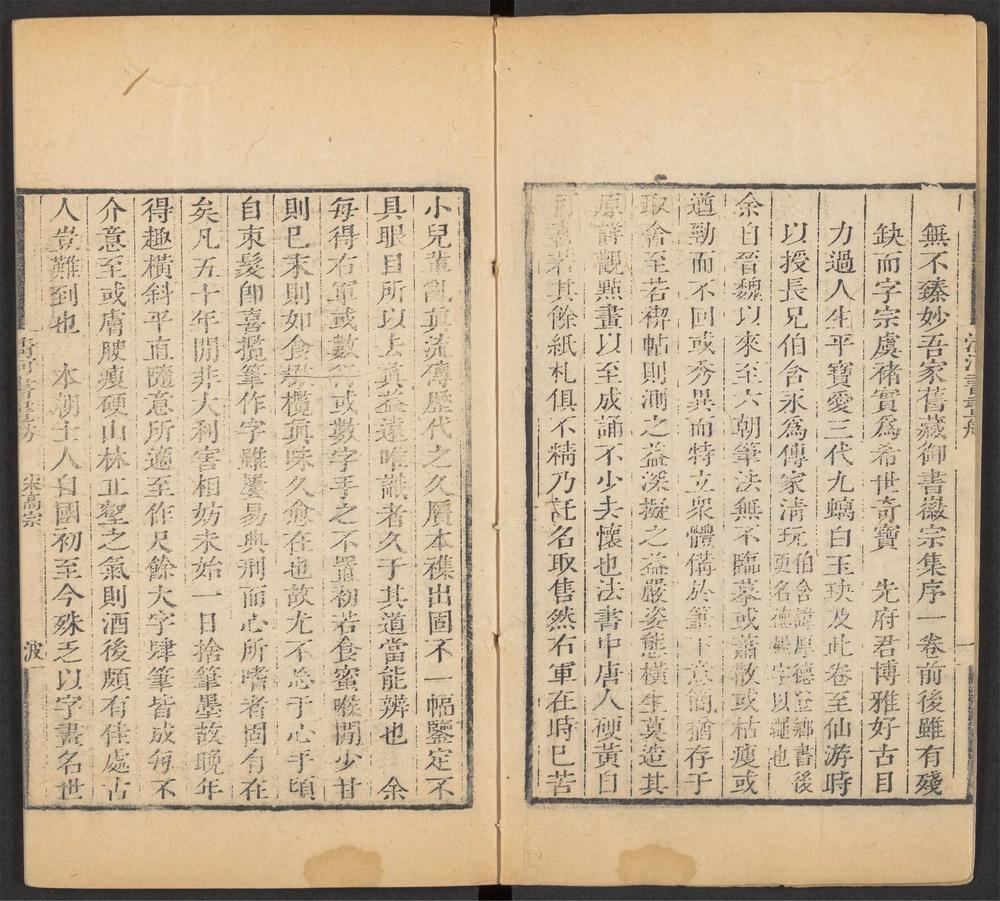 清河書畫舫
一
無不臻妙吾家舊藏御書徽宗集序一卷前後雖有殘
缺而字宗虞褚實爲希世奇寶　先府君博雅好古目
力過人生平寶愛三代九螭白玉玦及此卷至仙游時
以授長兄伯含永爲傳家清玩
伯含諱厚德登鄉書後
更名德字以也
余自晉魏以來至六朝筆法無不臨摹或蕭散或枯瘦或
遒勁而不回或秀異而特立衆體備於筆下意簡猶存于
取舍至若禊帖則測之益深擬之益嚴姿態橫生莫造其
原詳觀㸃畫以至成誦不少去懷也法書中唐人硬黃自
可喜若其餘紙札俱不精乃託名取售然右軍在時已苦
小兒輩亂真流傳歷代之久贋本襍出固不一幅鑒定不
具眼目所以去真益遠唯識者久于其道當能辨也　余
每得右軍或數行或數字手之不置初若食蜜喉間少甘
則已末則如食橄欖真味久愈在也故尤不忘于心手頃
自束髮即喜攬筆作字雖屢易典刑而心所嗜者固有在
矣凡五十年間非大利害相妨未始一日捨筆墨故晚年
得趣橫斜平直隨意所適至作尺餘大字肆筆皆成每不
介意至或膚腴瘦硬山林丘壑之氣則酒後頗有佳處古
人豈難到也　本朝士人自國初至今殊乏以字畫名世
清河書畫舫
宋高宗
波